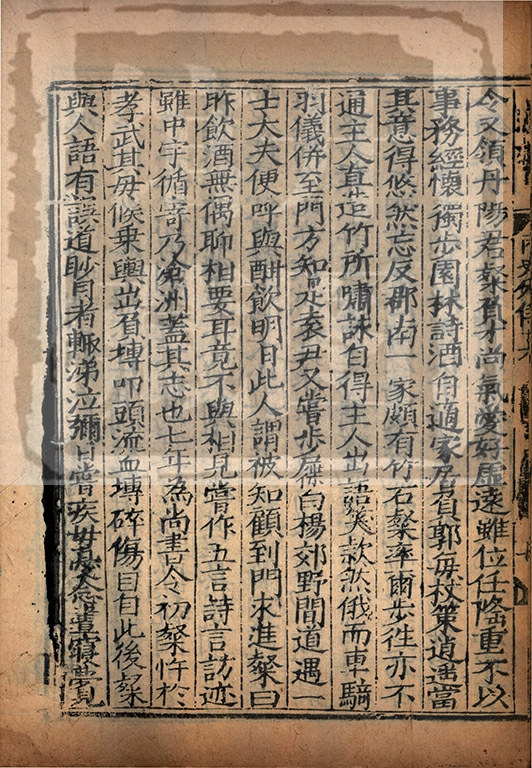 令又領丹陽君粲負才尚氣愛好虛遠雖位任隆重不以
事務經懷獨步園林詩酒自適家居負郭每杖策逍遙當
其意得悠然忘反郡南一家頗有竹石粲率爾步往亦不
通主人直造竹所嘯詠自得主人出語笑款然俄而車騎
羽儀併至門方知是袁尹又嘗步屧白楊郊野間道遇一
士大夫便呼與酣飲明日此人謂被知顧到門求進粲曰
昨飲酒無偶聊相要耳竟不與相見嘗作五言詩言訪迹
雖中宇循寄乃滄洲蓋其志也七年為尚書令初粲忤於
孝武其母候乘輿出負塼叩頭流血塼碎傷目自此後粲
與人語有誤道眇目者輒涕泣彌日嘗疾母憂念晝寢夢見